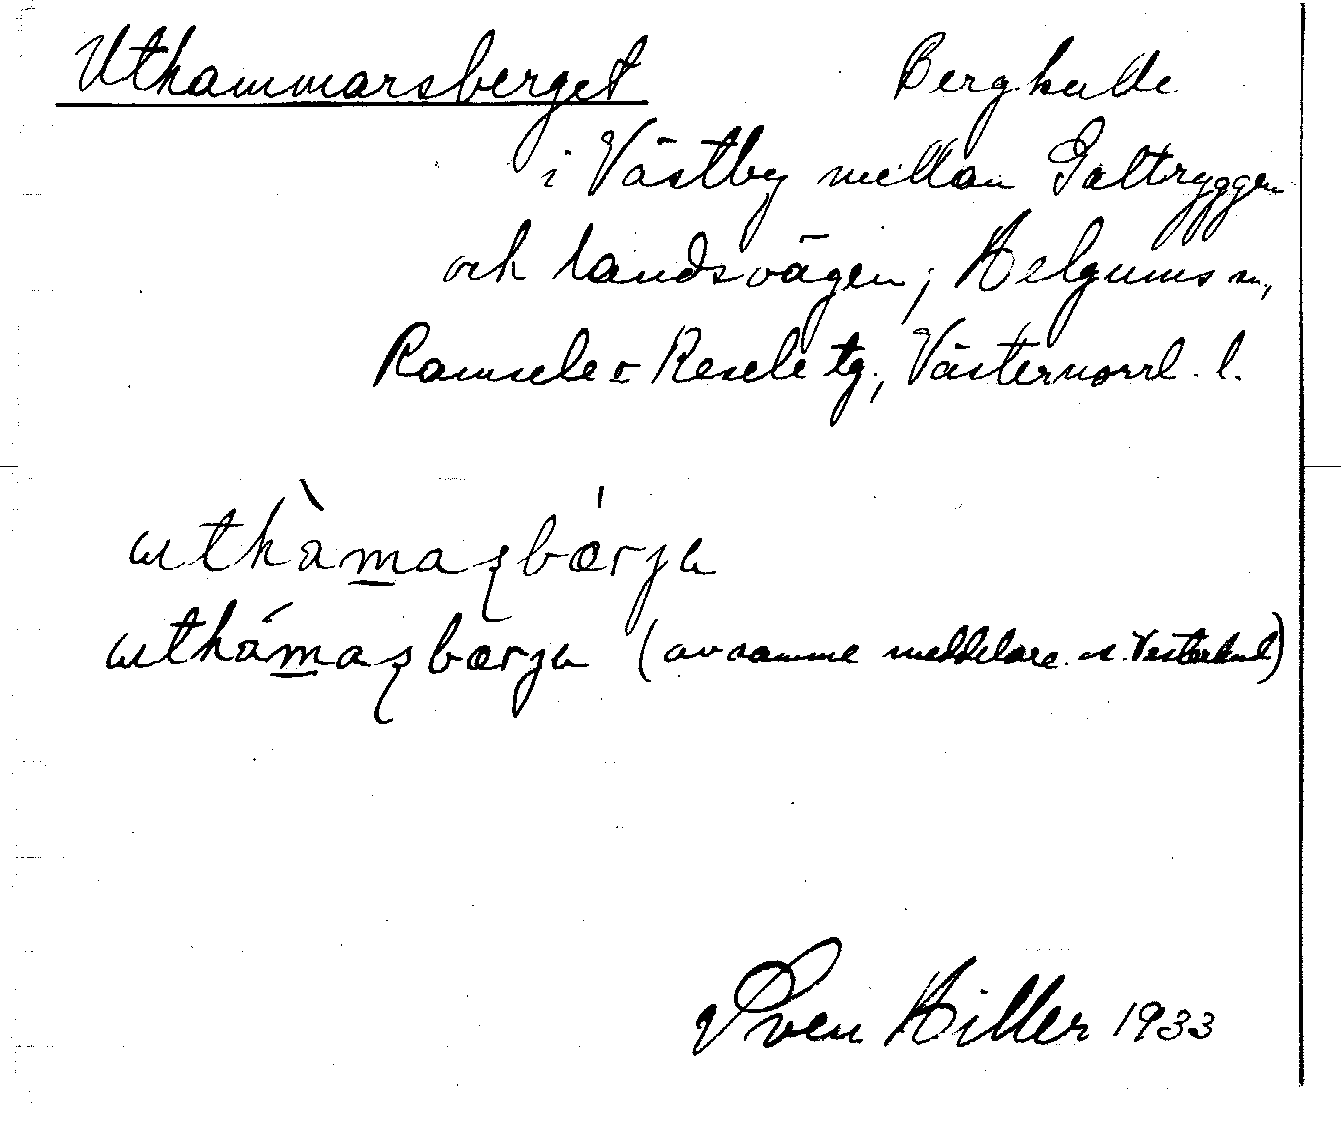 Uthammarsberget Bergkulle
i Västby mellan Galtryggen
och landsvägen, Helgums sn,
Ramsele o Resele tg., Västernorrl. l.
uthàmaʂbærja
uthámaʂbærja (av samme meddelare
Sven Hiller 1933